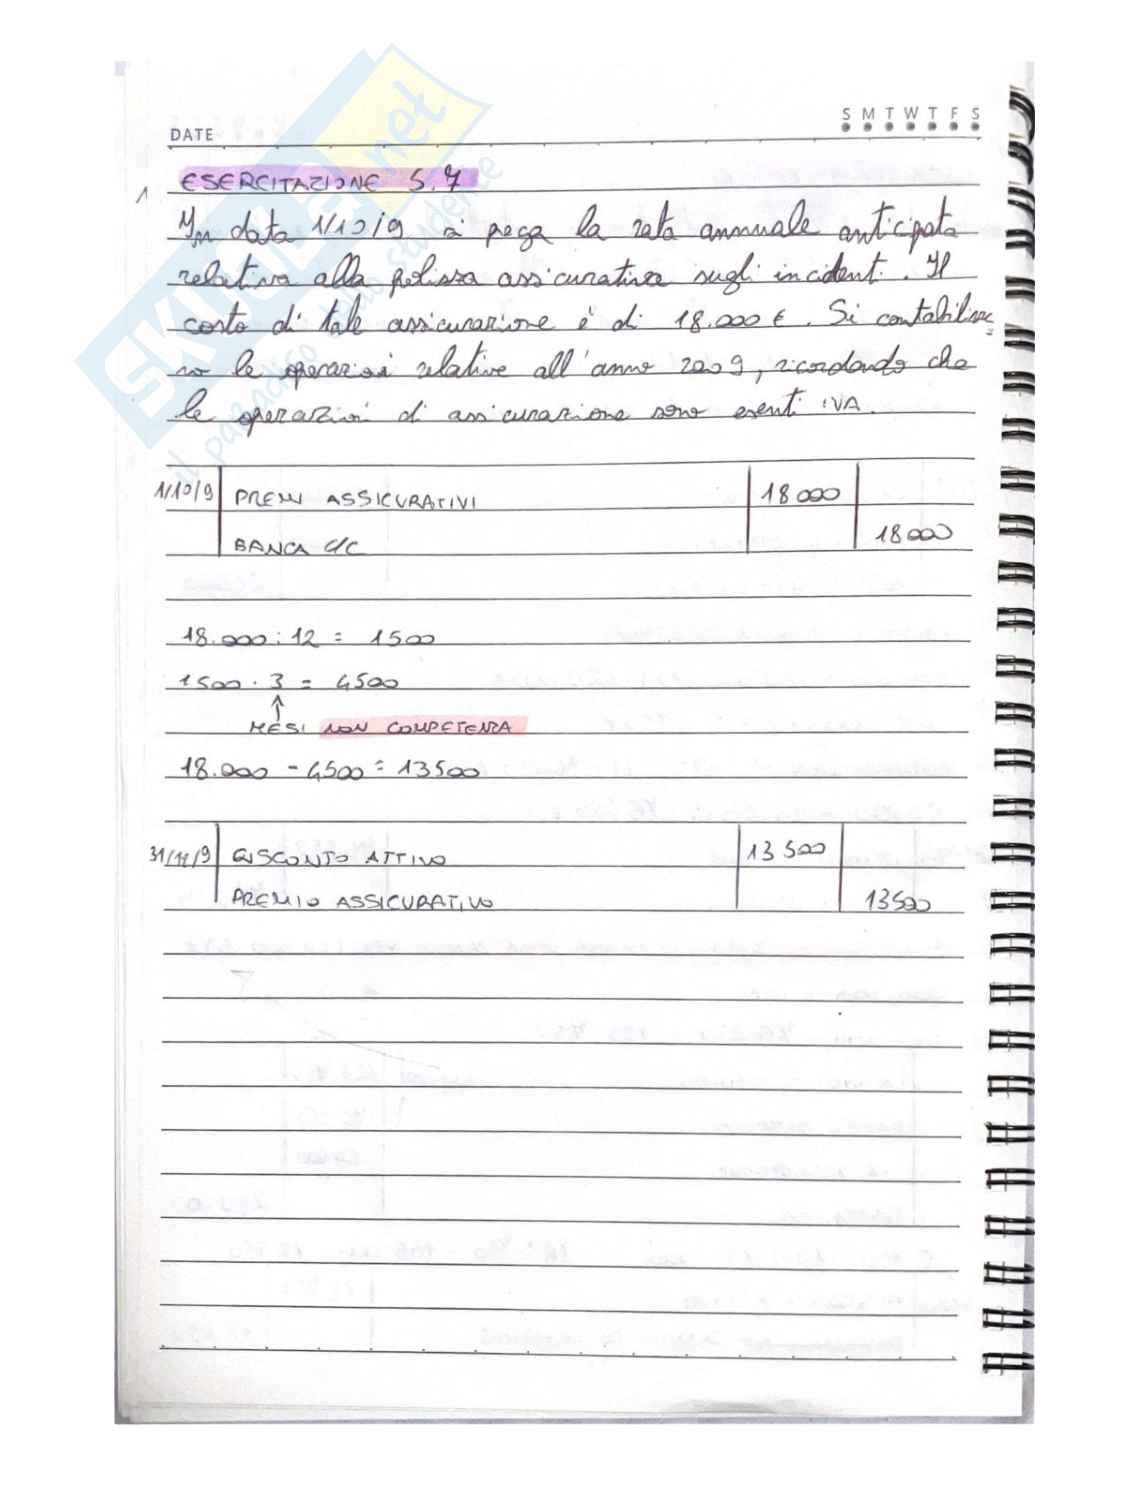 S M T W T F S
DATE
ESERCITAZIONE 5.7
1
In data 1/10/9 si paga la rata annuale anticipata
relativa alla polizza assicurativa sugli incidenti. Il
costo di tale assicurazione è di 18.000 €. Si contabilizzi=
no le operazioni relative all'anno 2009, ricordando che
le operazioni di assicurazione sono esenti IVA.
1/10/9 PREMI ASSICURATIVI 18000
BANCA C/C 18000
18.000 : 12 = 1500
1500 · 3 = 4500
MESI NON COMPETENZA
18.000 - 4500 = 13500
31/12/9 RISCONTO ATTIVO 13500
PREMIO ASSICURATIVO 13500
SKUOLA.net
il paradiso dello studente